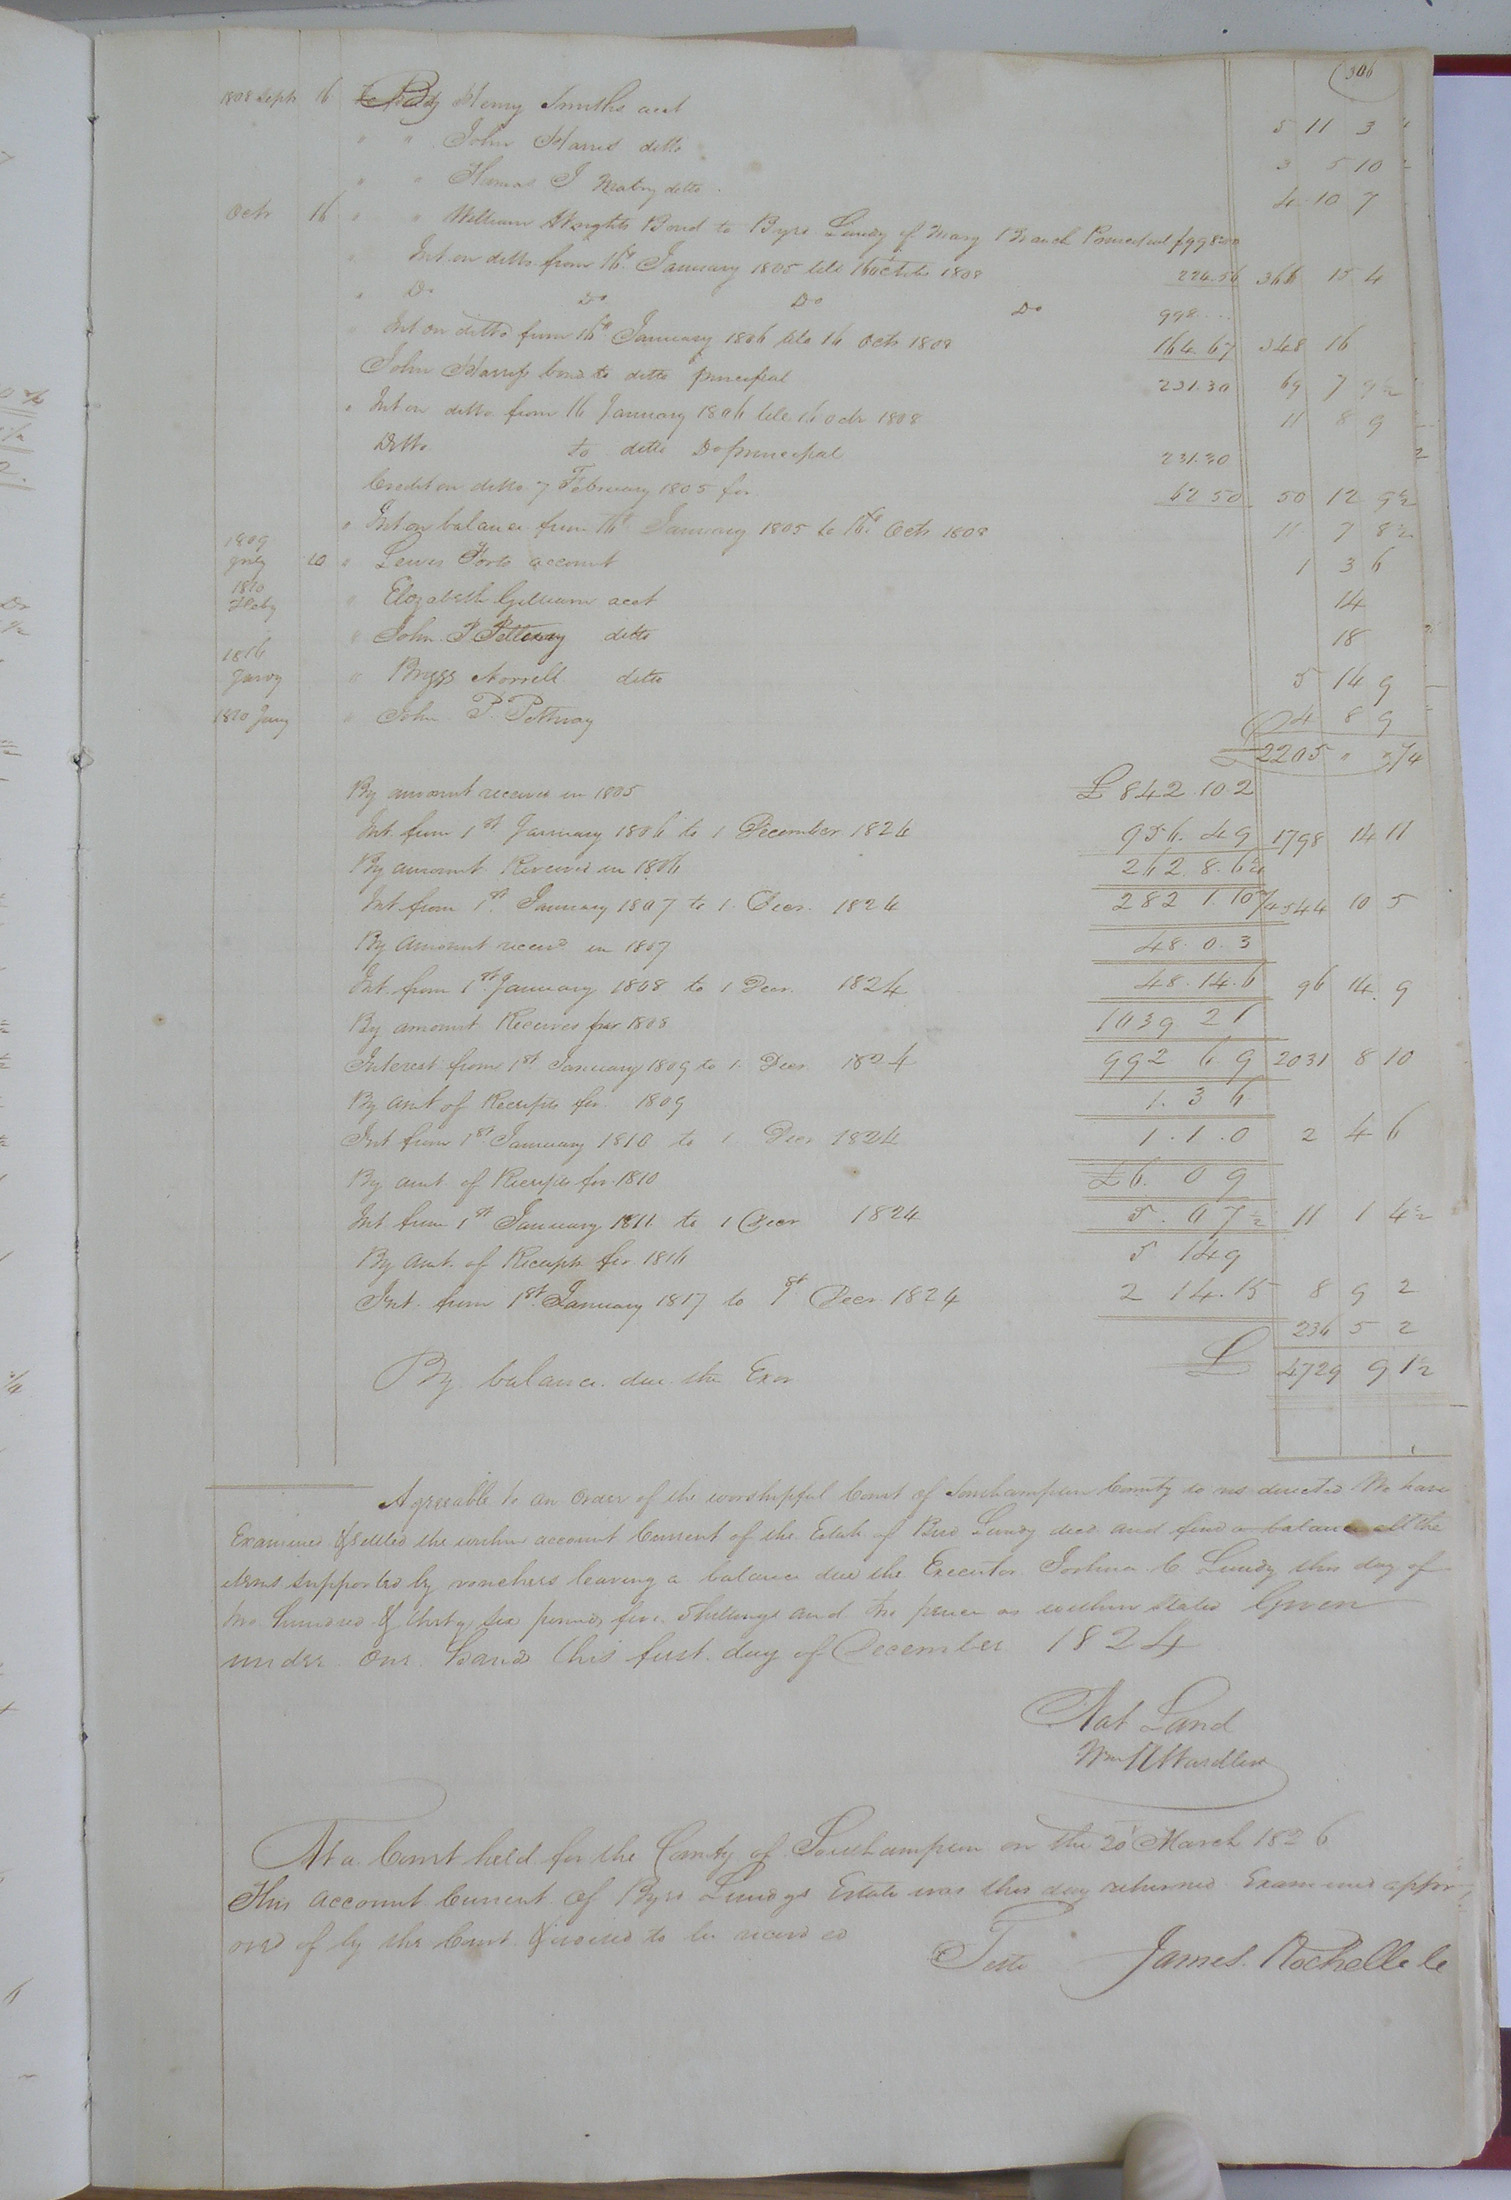 306
1808 Septr 16 By Henry Smiths acct 5 11 3
" " John Harris ditto 3 5 10
" " Thomas J ditto 4 10 7
Octr 16 " " William Wrights Bond to Byrd Lundy of Mary Branch Principal $998.00
" Int on ditto from 16th January 1805 till 16 Octr 1808 224.56 366 15 4
" Do Do Do Do 998...
" Int on ditto from 16th January 1806 till 16 Octr 1808 164.67 348 16
John Harriss bond to ditto principal 231.30 69 7 9½
" Int on ditto from 16 January 1806 till 16 octr 1808 11 8 9
Ditto to ditto Do principal 231.30
Credit on ditto 7 February 1805 for 62 50 50 12 9½
" Int on balance from 16th January 1805 to 16th Octr 1808 11 7 8½
1809
July 20 " Lewis Forts account 1 3 6
1810
Feby " Elizabeth Gilliam acct 14
" John P Pettway ditto 18
1816
Janry " Briggs Norrell ditto 5 14 9
1810 Jany " John P. Pettway 4 8 9
2205 " 3/4
By amount received in 1805 £842.10.2
Int. from 1st January 1806 to 1 December 1824 956.4.9 1798 14 11
By amount Received in 1806 262.8.6½
Int from 1st January 1807 to 1 Decr. 1824 282 1 10¾ 544 10 5
By amount receivd in 1807 48.0.3
Int. from 1st January 1808 to 1 Decr. 1824 48.14.6 96 14 9
By amount Received for 1808 1039 2 1
Interest from 1st January 1809 to 1 Decr 1824 992 6 9 2031 8 10
By amt of Receipts for 1809 1.3 6
Int from 1st January 1810 to 1 Decr 1824 1.1.0 2 4 6
By amt of Receipts for 1810 £6. 0 9
Int from 1st January 1811 to 1 Decr 1824 5.0 7½ 11 1 4½
By amt. of Receipts for 1816 5 14 9
Int. from 1st January 1817 to 1st Decr 1824 2 14.15 8 9 2
236 5 2
By balance due the Exor £ 4729 9 1½
Agreeable to an order of the worshipful Court of Southampton County to us directed We have
Examined & settled the within account Current of the Estate of Byrd Lundy decd and find a balance all the
items supported by vouchers leaving a balance due the Executor Joshua C. Lundy this day of
two hundred & thirty six pounds five Shillings and two pence as within stated Given
under our hands this first day of December 1824
Nat Land
At a Court held for the County of Southampton on the 20 March 1826
This account Current of Byrd Lundys Estate was this day returned Examined appro
oved of by the Court & ordered to be recorded
Teste James Rochelle Cc